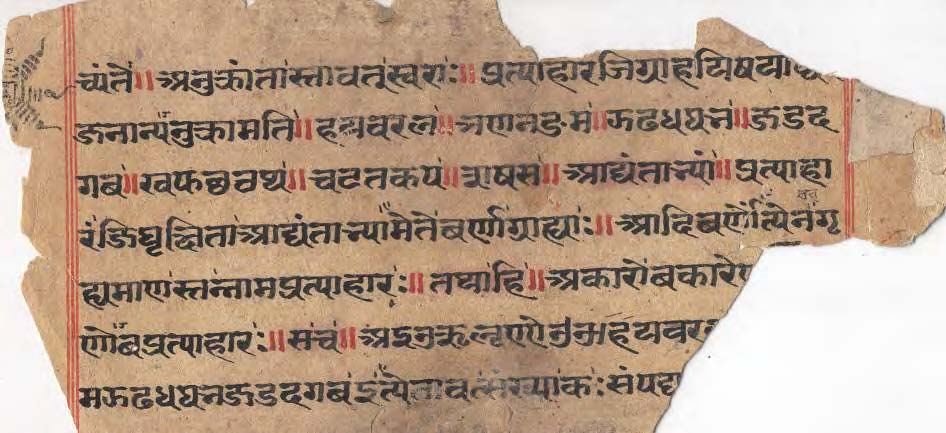 च्यंते॥ अनुक्रांतास्तावत्स्वराः॥ प्रत्याहारजिग्राहयिषया
जनान्यनुक्रामति॥ हयवरल॥ ञणनङम॥ झढधघभ॥ जडद
गब॥ खफछठथ॥ चटतकप॥ शषस॥ आद्यंताभ्यां॥ प्रत्याहा
रंजिघृक्षिता आद्यंताभ्यामेतेवर्णाग्राह्याः॥ आदिवर्णोंत्येनगृ
ह्यमाणस्तन्नामप्रत्याहारः॥ तथाहि॥ अकारोबकारे
णेबप्रत्याहारः॥ सच॥ अइउऋऌएऐओऔहयवर
मझढधघभजडदगबइत्येतावत्संख्याकः संपद्य